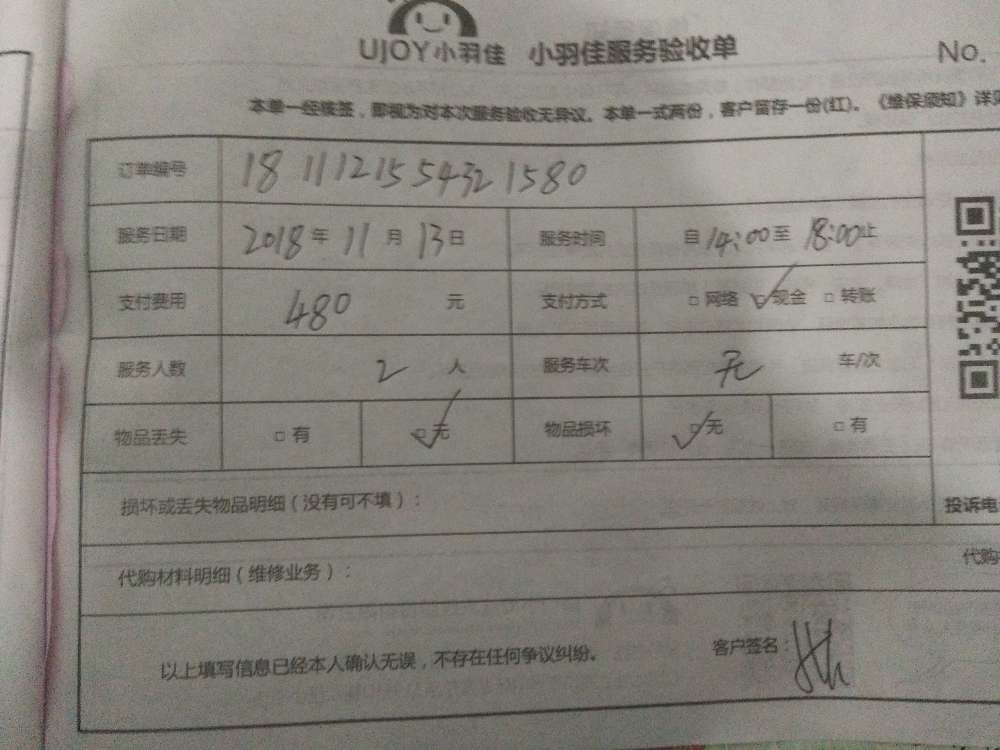 UJOY小羽佳 小羽佳服务验收单 No.
本单一经接签，即视为对本次服务验收无异议。本单一式两份，客户留存一份(红)。《维保须知》详见
订单编号 18 1112155432 1580
服务日期 2018 年 11 月 13 日 服务时间 自 14:00 至 18:00 止
支付费用 480 元 支付方式 □ 网络 ☑ 现金 □ 转账
服务人数 2 人 服务车次 无 车/次
物品丢失 □ 有 ☑ 无 物品损坏 ☑ 无 □ 有
损坏或丢失物品明细（没有可不填）： 投诉电
代购材料明细（维修业务）： 代购
以上填写信息已经本人确认无误，不存在任何争议纠纷。 客户签名：